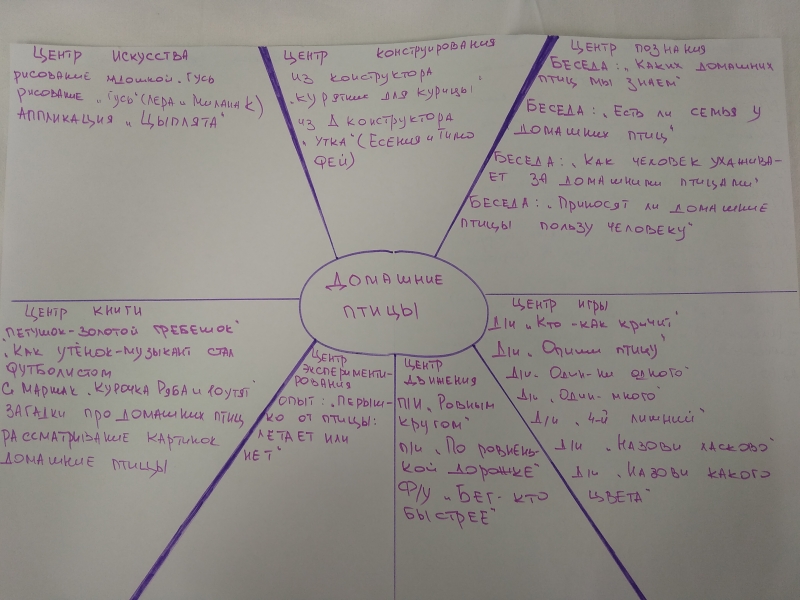 ЦЕНТР ИСКУССТВА
РИСОВАНИЕ ЛАДОШКОЙ „ГУСЬ
РИСОВАНИЕ „ГУСЬ" (ЛЕРА И МИЛАНА К)
АППЛИКАЦИЯ „ЦЫПЛЯТА"
ЦЕНТР КОНСТРУИРОВАНИЯ
ИЗ КОНСТРУКТОРА
„КУРЯТНИК ДЛЯ КУРИЦЫ"
ИЗ Д КОНСТРУКТОРА
„УТКА" (ЕСЕНИЯ И ТИМО
ФЕЙ)
ЦЕНТР ПОЗНАНИЯ
БЕСЕДА: „КАКИХ ДОМАШНИХ
ПТИЦ МЫ ЗНАЕМ"
БЕСЕДА: „ЕСТЬ ЛИ СЕМЬЯ У
ДОМАШНИХ ПТИЦ"
БЕСЕДА: „КАК ЧЕЛОВЕК УХАЖИВА-
ЕТ ЗА ДОМАШНИМИ ПТИЦАМИ"
БЕСЕДА: „ПРИНОСЯТ ЛИ ДОМАШНИЕ
ПТИЦЫ ПОЛЬЗУ ЧЕЛОВЕКУ"
ДОМАШНИЕ
ПТИЦЫ
ЦЕНТР КНИГИ
„ПЕТУШОК-ЗОЛОТОЙ ГРЕБЕШОК"
„КАК УТЁНОК-МУЗЫКАНТ СТАЛ
ФУТБОЛИСТОМ
С МАРШАК „КУРОЧКА РЯБА И 10 УТЯТ"
ЗАГАДКИ ПРО ДОМАШНИХ ПТИЦ
РАССМАТРИВАНИЕ КАРТИНОК
ДОМАШНИЕ ПТИЦЫ
ЦЕНТР
ЭКСПЕРИМЕНТИ-
РОВАНИЯ
ОПЫТ: „ПЕРЫШ-
КО ОТ ПТИЦЫ:
ЛЕТАЕТ ИЛИ
НЕТ"
ЦЕНТР
ДВИЖЕНИЯ
П/И „РОВНЫМ
КРУГОМ"
П/И „ПО РОВНЕНЬ-
КОЙ ДОРОЖКЕ"
Ф/У „БЕГ- КТО
БЫСТРЕЕ"
ЦЕНТР ИГРЫ
Д/И „КТО -КАК КРИЧИТ"
Д/И „ОПИШИ ПТИЦУ"
Д/И „ОДИН-НИ ОДНОГО"
Д/И „ОДИН-МНОГО"
Д/И „4-Й ЛИШНИЙ"
Д/И „НАЗОВИ ЛАСКОВО"
Д/И „НАЗОВИ КАКОГО
ЦВЕТА"